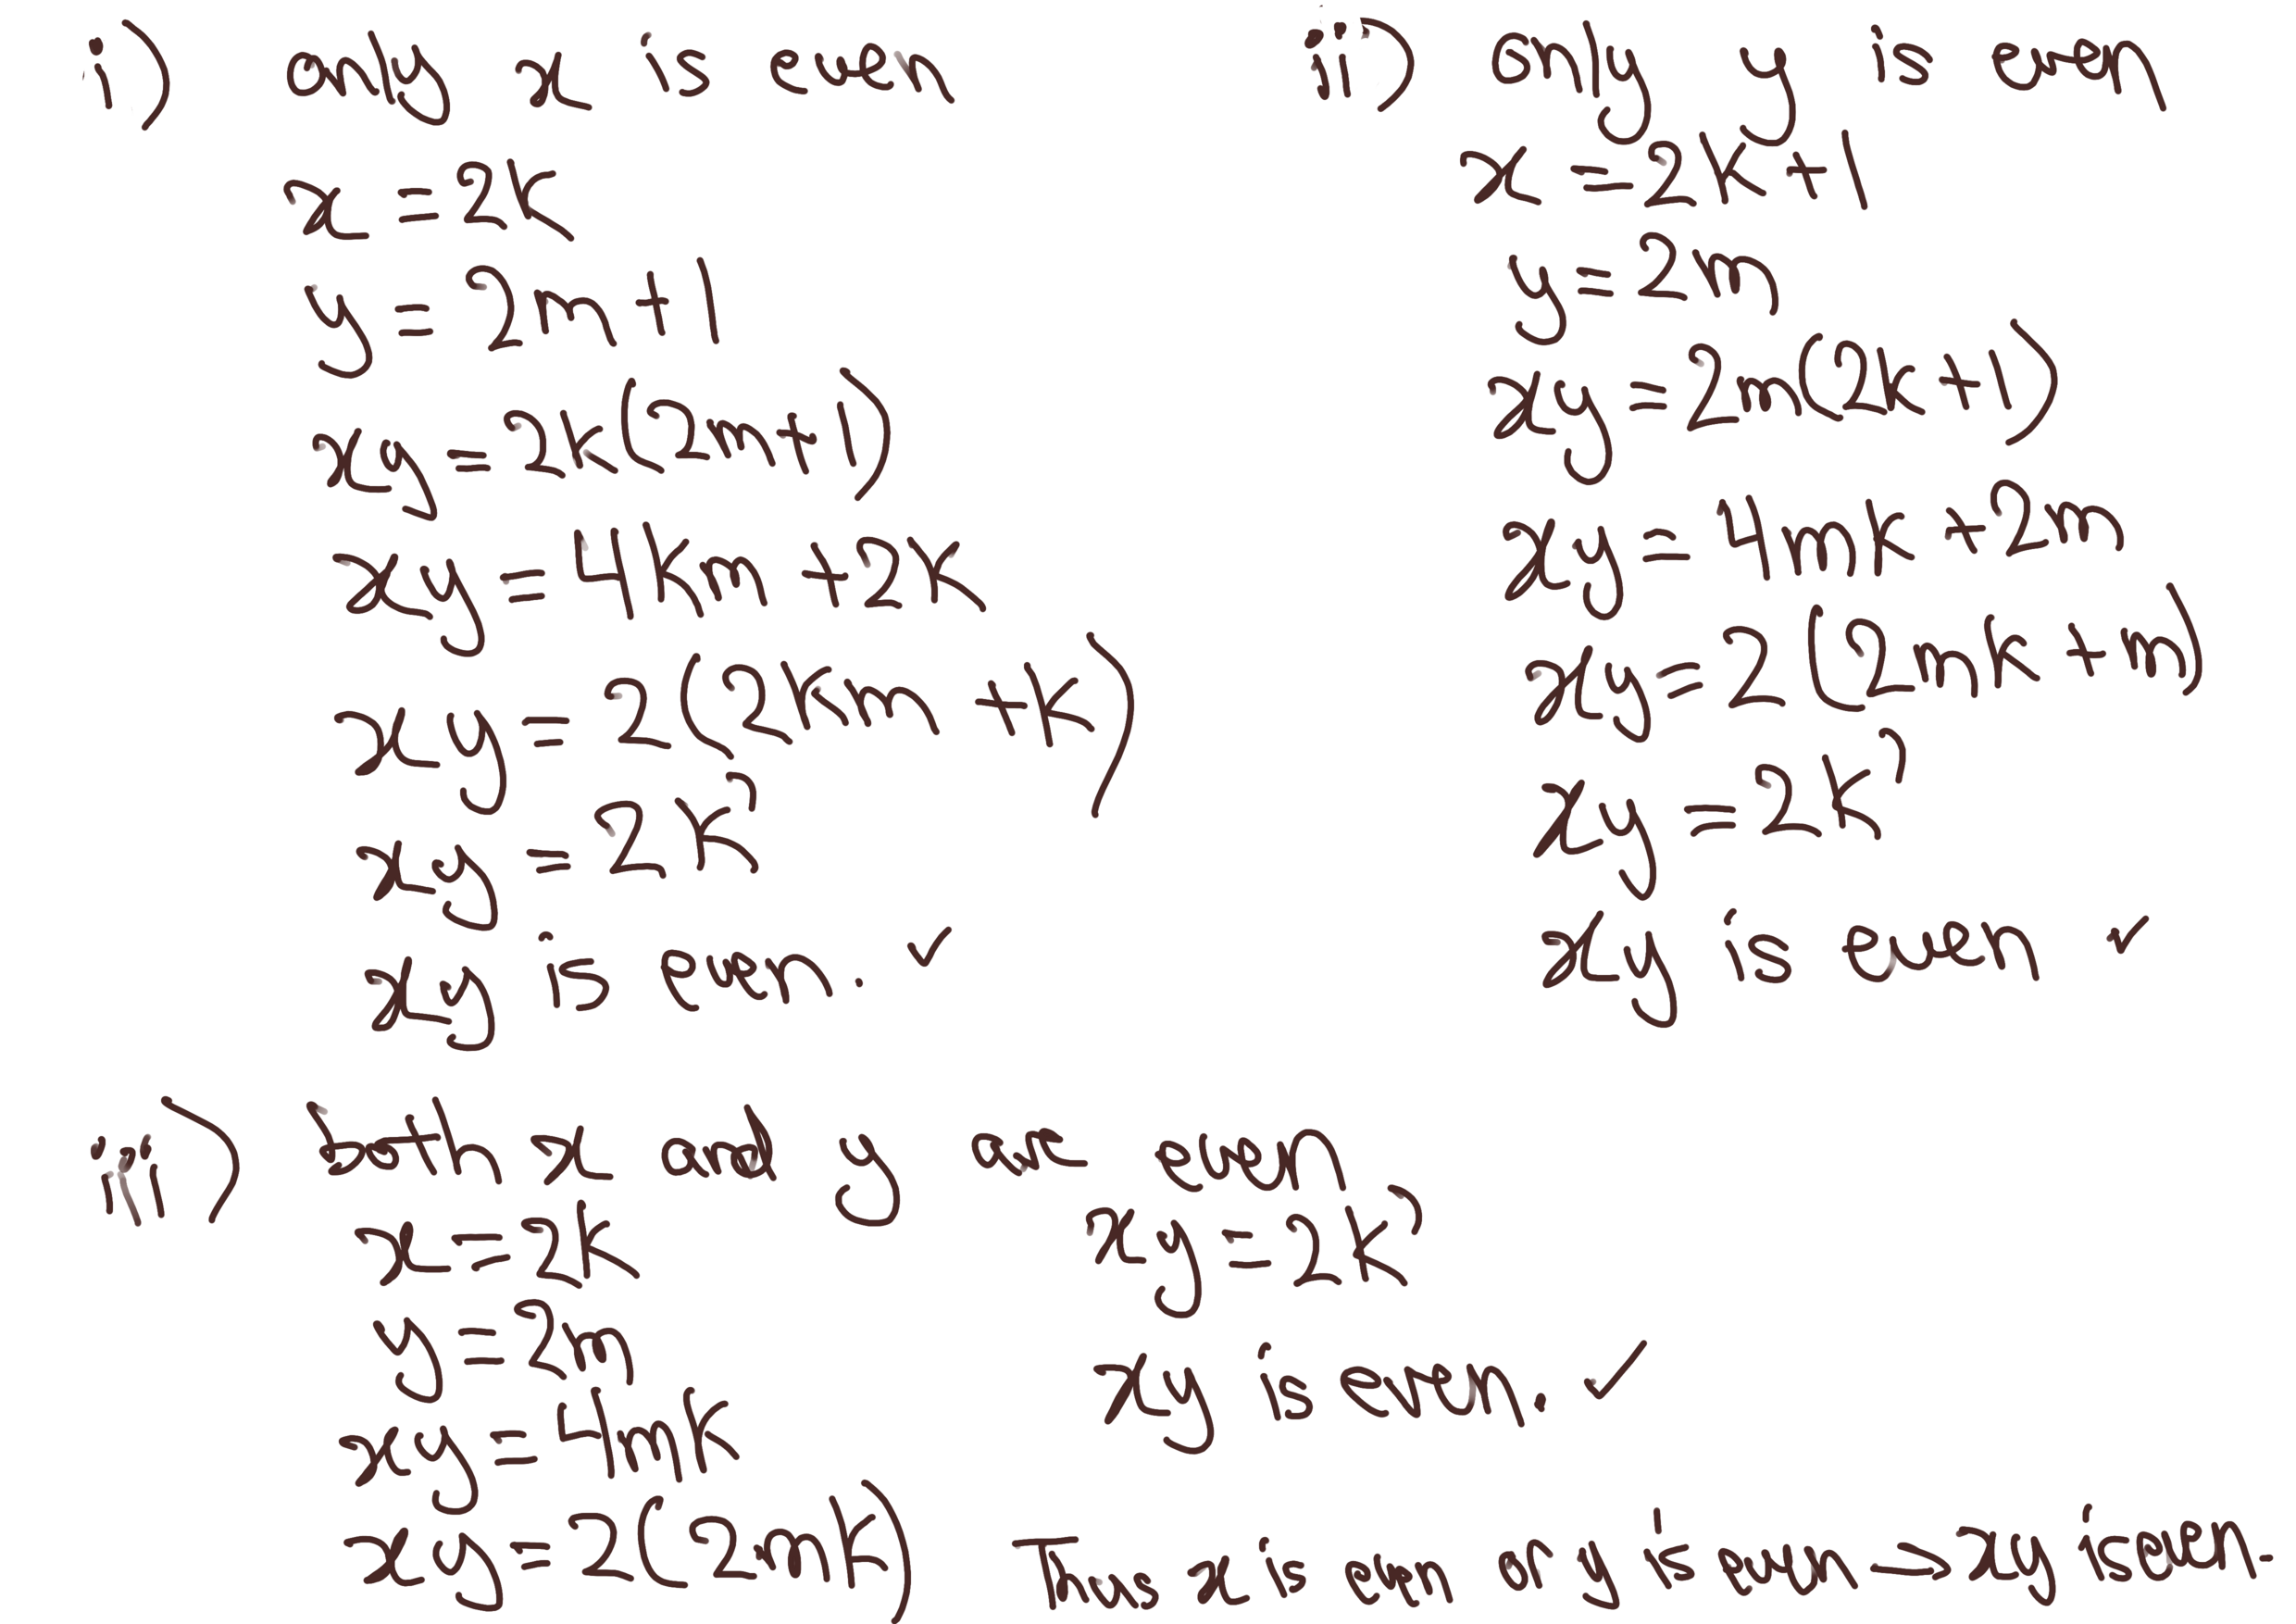 i) only x is even
x = 2k
y = 2m+1
xy = 2k(2m+1)
xy = 4km+2k
xy = 2(2km+k)
xy = 2k'
xy is even. ✓
ii) only y is even
x = 2k+1
y = 2m
xy = 2m(2k+1)
xy = 4mk+2m
xy = 2(2mk+m)
xy = 2k'
xy is even ✓
iii) both x and y are even
x = 2k
y = 2m
xy = 4mk
xy = 2(2mk)
xy = 2k'
xy is even. ✓
Thus x is even or y is even → xy is even.